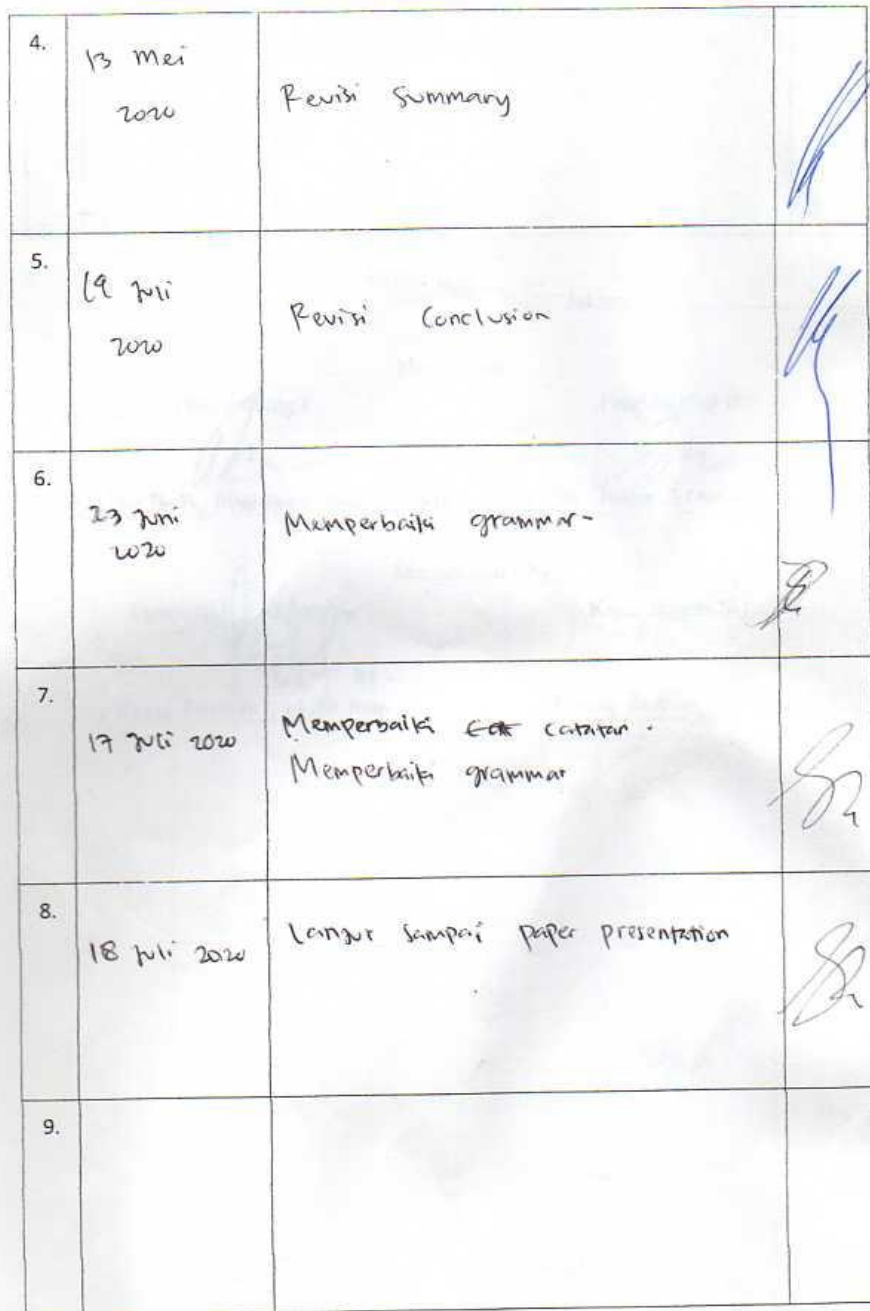 4.
13 Mei
2020
Revisi Summary
5.
19 Juli
2020
Revisi Conclusion
6.
23 Juni
2020
Memperbaiki grammar-
7.
17 Juli 2020
Memperbaiki catatan.
Memperbaiki grammar
8.
18 Juli 2020
Lanjut sampai paper presentation
9.